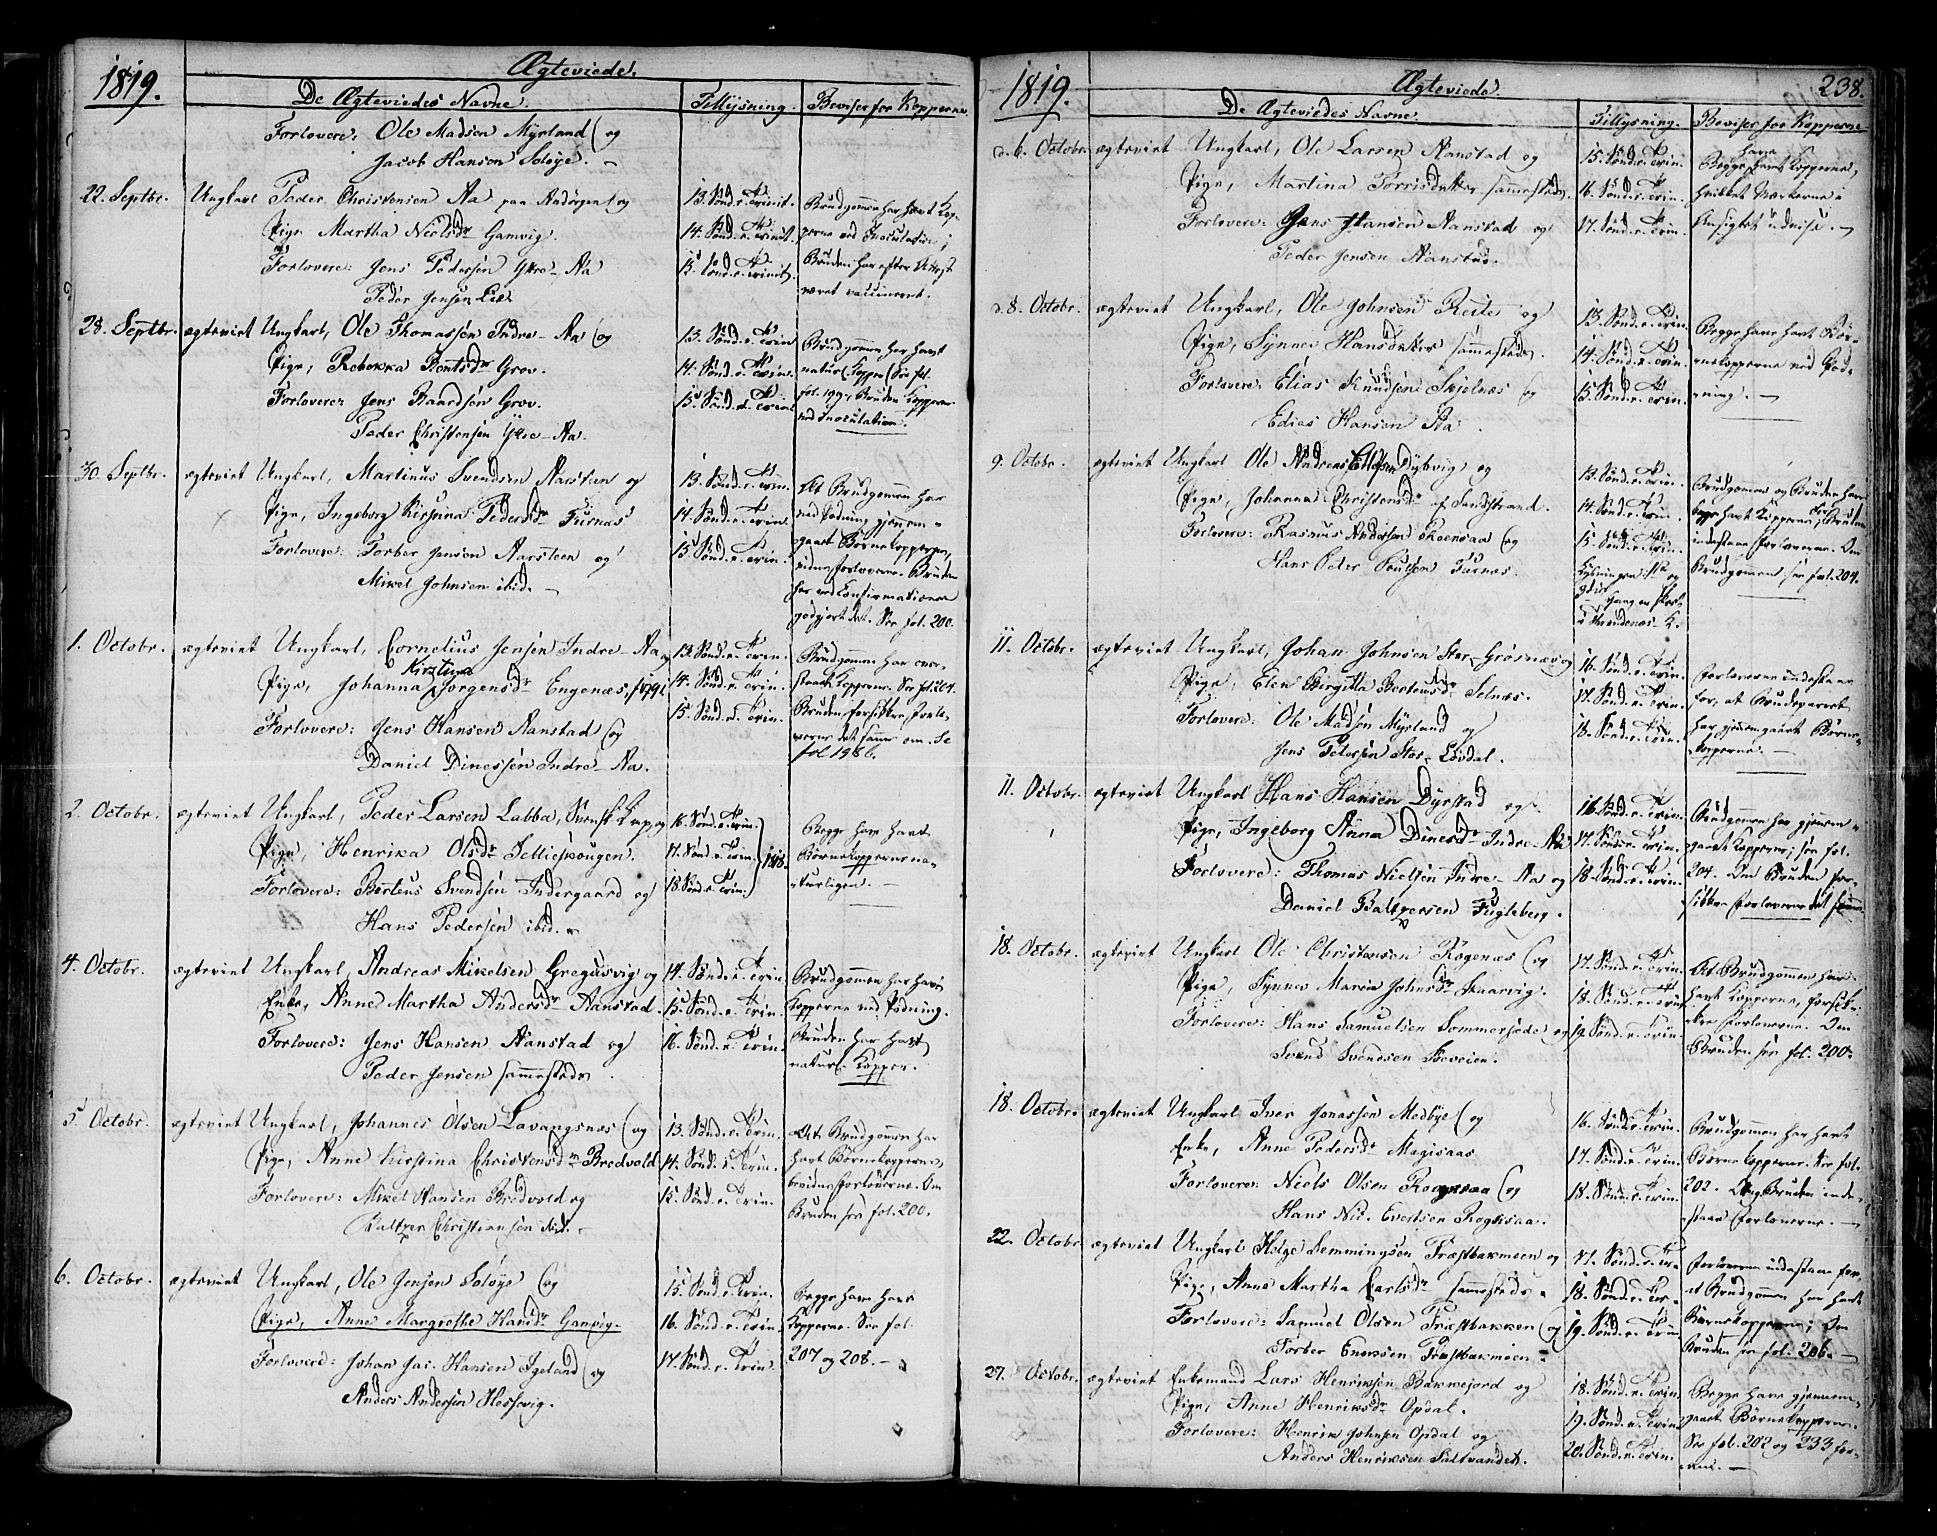 1819.
Ægteviede.
De Ægteviedes Navne.
Tillysning.
Beviser for Kopperne.
Forlovere: Ole Madsen Myrland og
Jacob Hansen Soløye. –
22. Septbr. Ungkarl Peder Christensen Aa paa Andørgen og
Pige Martha Nielsdr Gamvig.
Forlovere: Jens Pedersen Ytre-Aa
Peder Jensen Lie.
13. Sønd. e. Trinit.
14. Sønd. e. Trinit.
15. Sønd. e. Trinit.
Brudgomen har havt Kop-
perne ved Inoculation;
Bruden har efter Attest
været vaccineret.
28. Septbr. ægteviet Ungkarl, Ole Thomassen Indre-Aa og
Pige, Rebekka Bentsdr Grov.
Forlovere: Jens Baardsen Grov.
Peder Christensen Ytre-Aa.
13. Sønd. e. Trin.
14. Sønd. e. Trin.
15. Sønd. e. Trin.
Brudgomen har havt
naturl. Kopper
fol. 199. Bruden Kopperne
ved Inoculation.
30. Septbr. ægteviet Ungkarl, Martinus Svendsen Aarsteen og
Pige, Ingeborg Kirstina Pedersdr Furnæs
Forlovere: Torber Jensen Aarsteen og
Mikel Johnsen ibid. –
13. Sønd. e. Trin.
14. Sønd. e. Trin.
15. Sønd. e. Trin.
At Brudgommen har
ved Podning gjennem-
gaaet Børnekopperne,
vidne Forloverne. Bruden
har ved Confirmationen
godgjort det. See fol. 200.
1. Octobr. ægteviet Ungkarl, Cornelius Jensen Indre-Aa og
Kirstina
Pige, Johanna Jørgensdr Engenæs,
Forlovere: Jens Hansen Aanstad og
Daniel Dinessen Indre-Aa.
13. Sønd. e. Trin.
14. Sønd. e. Trin.
15. Sønd. e. Trin.
Brudgomen har over-
staaet Kopperne. See fol. 204.
Bruden forsikkre Forlo-
verne det samme om. See
fol 198 b.
2. Octobr. ægteviet Ungkarl, Peder Larsen Labba, Svensk Lap og
Pige, Henrika Olsdr Sellieskougen.
Forlovere: Berteus Svendsen Indergaard og
Hans Pedersen ibid. –
16. Sønd. e. Trin.
17. Sønd. e. Trin.
18. Sønd. e. Trin.
1818.
Begge have havt
Børnekopperne na-
turligen. –
4. Octobr. ægteviet Ungkarl, Andreas Mikelsen Gregusvig og
Enke, Anne Martha Andersdr Aanstad.
Forlovere: Jens Hansen Aanstad og
Peder Jensen sammesteds.
14. Sønd. e. Trin.
15. Sønd. e. Trin.
16. Sønd. e. Trin.
Brudgommen har havt
Kopperne ved Podning.
Bruden har havt
naturl. Kopper.
5. Octobr. ægteviet Ungkarl, Johannes Olsen Lavangsnæs og
Pige, Anne Kirstina Christensdr Bredvold
Forlovere: Mikel Hansen Bredvold og
Baltzer Christiansen ibid. –
13. Sønd. e. Trin.
14. Sønd. e. Trin.
15. Sønd. e. Trin.
At Brudgommen har
havt Børnekopperne,
bevidne Forloverne. Om
Bruden see fol. 200.
6. Octobr. ægteviet Ungkarl, Ole Jensen Soløye og
Pige, Anne Margrethe Hansdr Gamvig.
Forlovere: Johan Jac. Hansen Igeland og
Anders Andersen Hessevig.
15. Sønd. e. Trin.
16. Sønd. e. Trin.
17. Sønd. e. Trin.
Begge have havt
Kopperne. See fol.
207 og 208. –
1819.
Ægteviede.
238.
De Ægteviedes Navne.
Tillysning.
Beviser for Kopperne
6. Octobr. ægteviet Ungkarl, Ole Larsen Aanstad og
Pige, Martina Torrisdatter sammesteds.
Forlovere: Jens Hansen Aanstad og
Peder Jensen Aanstad.
15. Sønd. e. Trin.
16. Sønd. e. Trin.
17. Sønd. e. Trin.
have
Begge havt Kopperne,
hvilket Mærkerne i
Ansigtet udvise. –
8. Octobr. ægteviet Ungkarl, Ole Johnsen Reite og
Pige, Synnev Hansdatter sammesteds.
Forlovere: Elias Knudsen Skielnæs og
Edias Hansen Aa.
13. Sønd. e. Trin.
14. Sønd. e. Trin.
15. Sønd. e. Trin.
Begge have havt Bør-
nekopperne ved Pod-
ning. –
9. Octobr. ægteviet Ungkarl Ole Andreas Ellefsen Dybvig og
Pige, Johanna Christensdr af Sandstrand.
Forlovere: Rasmus Andersen Roensaa og
Hans Peter Poulsen Furnæs.
13. Sønd. e. Trin.
14. Sønd. e. Trin.
15. Sønd. e. Trin.
Brudgomen og Bruden have
begge havt Kopperne, for Bruden
indestaae Forloverne. Om
Brudgommen see fol. 204.
11. Octobr. ægteviet Ungkarl, Johan Johnsen Stor-Grøsnæs og
Pige, Elen Birgitta Berteusdr Selnæs.
Forlovere: Ole Madsen Myrland og
Jens Petersen Stor-Løvdal.
16. Sønd. e. Trin.
17. Sønd. e. Trin.
18. Sønd. e. Trin.
Forloverne indestaae
for, at Brudeparret
har gjennemgaaet Børne-
kopperne. –
11. Octobr. ægteviet Ungkarl Hans Hansen Dyrstad og
Pige, Ingeborg Anna Dinesdr Indre-Aa
Forlovere: Thomas Nielsen Indre-Aa og
Daniel Baltzersen Fugleberg.
16. Sønd. e. Trin.
17. Sønd. e. Trin.
18. Sønd. e. Trin.
Brudgomen har gjennem-
gaaet Kopperne; see fol.
204. Om Bruden for-
sikkre Forloverne det samme.
18. Octobr. ægteviet Ungkarl Ole Christensen Rogenæs og
Pige, Synnev Maria Johnsdr Skaarvig.
Forlovere: Hans Samuelsen Sommersæde og
Svend Svendsen Breveien.
17. Sønd. e. Trin.
18. Sønd. e. Trin.
19. Sønd. e. Trin.
At Brudgomen har
havt Kopperne, forsik-
kre Forloverne. Om
Bruden see fol. 200.
18. Octobr. ægteviet Ungkarl Iver Jonassen Medbye og
Enke, Anne Pedersdr Mægisaas
Forlovere: Niels Olsen Rogensaa og
Hans Nic. Evertsen Rogensaa.
16. Sønd. e. Trin.
17. Sønd. e. Trin.
18. Sønd. e. Trin.
Brudgomen har havt
Børnekopperne. See fol.
202. Ang. Bruden inde-
staae Forloverne. –
22. Octobr. ægteviet Ungkarl Helge Lemmingsen Træstbakmoen og
Pige, Anne Martha Carlsdr sammesteds.
Forlovere: Samuel Olsen Træstbakken og
Torber Enoksen Træstbakmoen.
17. Sønd. e. Tr.
18. Sønd. e. Tr.
19. Sønd. e. Trin.
Forloverne indestaae for
at Brudgomen har havt
Børnekopperne; Om
Bruden see fol. 206. –
27. Octobr. ægteviet Enkemand Lars Henriksen Bakkejord og
Pige, Anne Henriksdr Opdal.
Forlovere: Henrik Johnsen Opdal og
Anders Henriksen Saltvandet.
18. Sønd. e. Trin.
19. Sønd. e. Trin.
20. Sønd. e. Trin.
Begge have gjennem-
gaaet Børnekopperne.
See fol. 202 og 233 for-